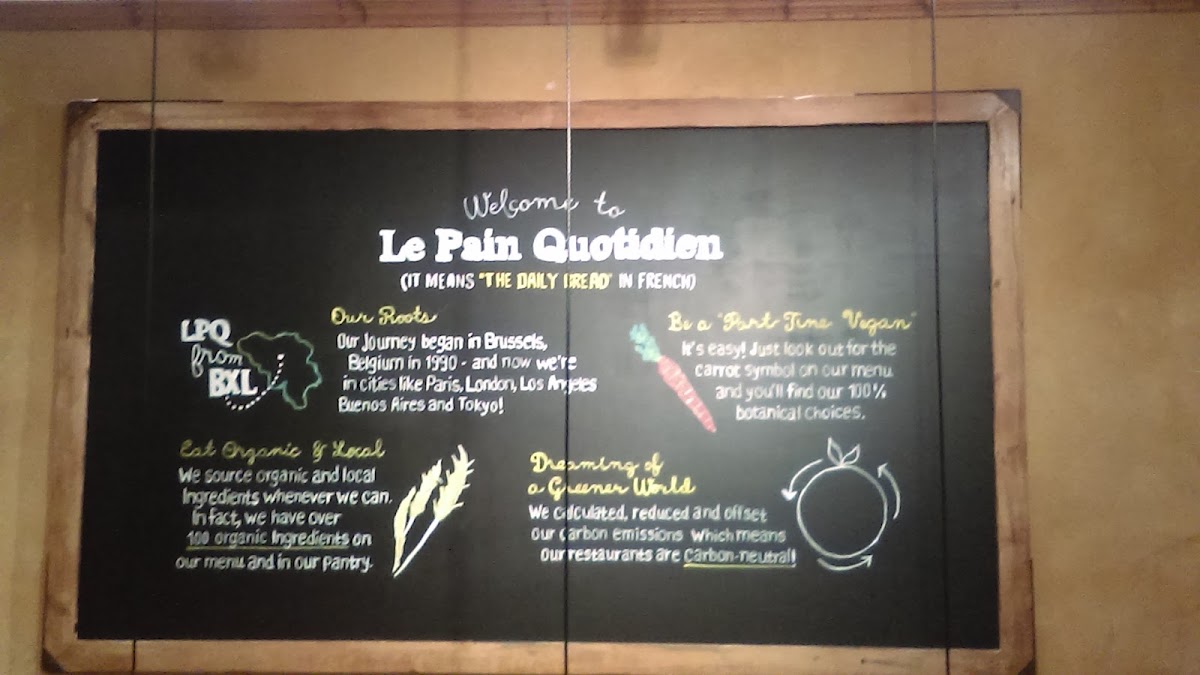 Welcome to
Le Pain Quotidien
(IT MEANS "THE DAILY BREAD" IN FRENCH)
LPQ
from
BXL
Our Roots
Our Journey began in Brussels,
Belgium in 1990 - and now we're
in cities like Paris, London, Los Angeles
Buenos Aires and Tokyo!
Be a "Part Time Vegan"
It's easy! Just look out for the
carrot symbol on our menu
and you'll find our 100%
botanical choices.
Eat Organic & Local
We source organic and local
Ingredients whenever we can.
In fact, we have over
100 organic Ingredients on
our menu and in our pantry.
Dreaming of
a Greener World
We calculated, reduced and offset
our carbon emissions which means
our restaurants are Carbon-neutral!